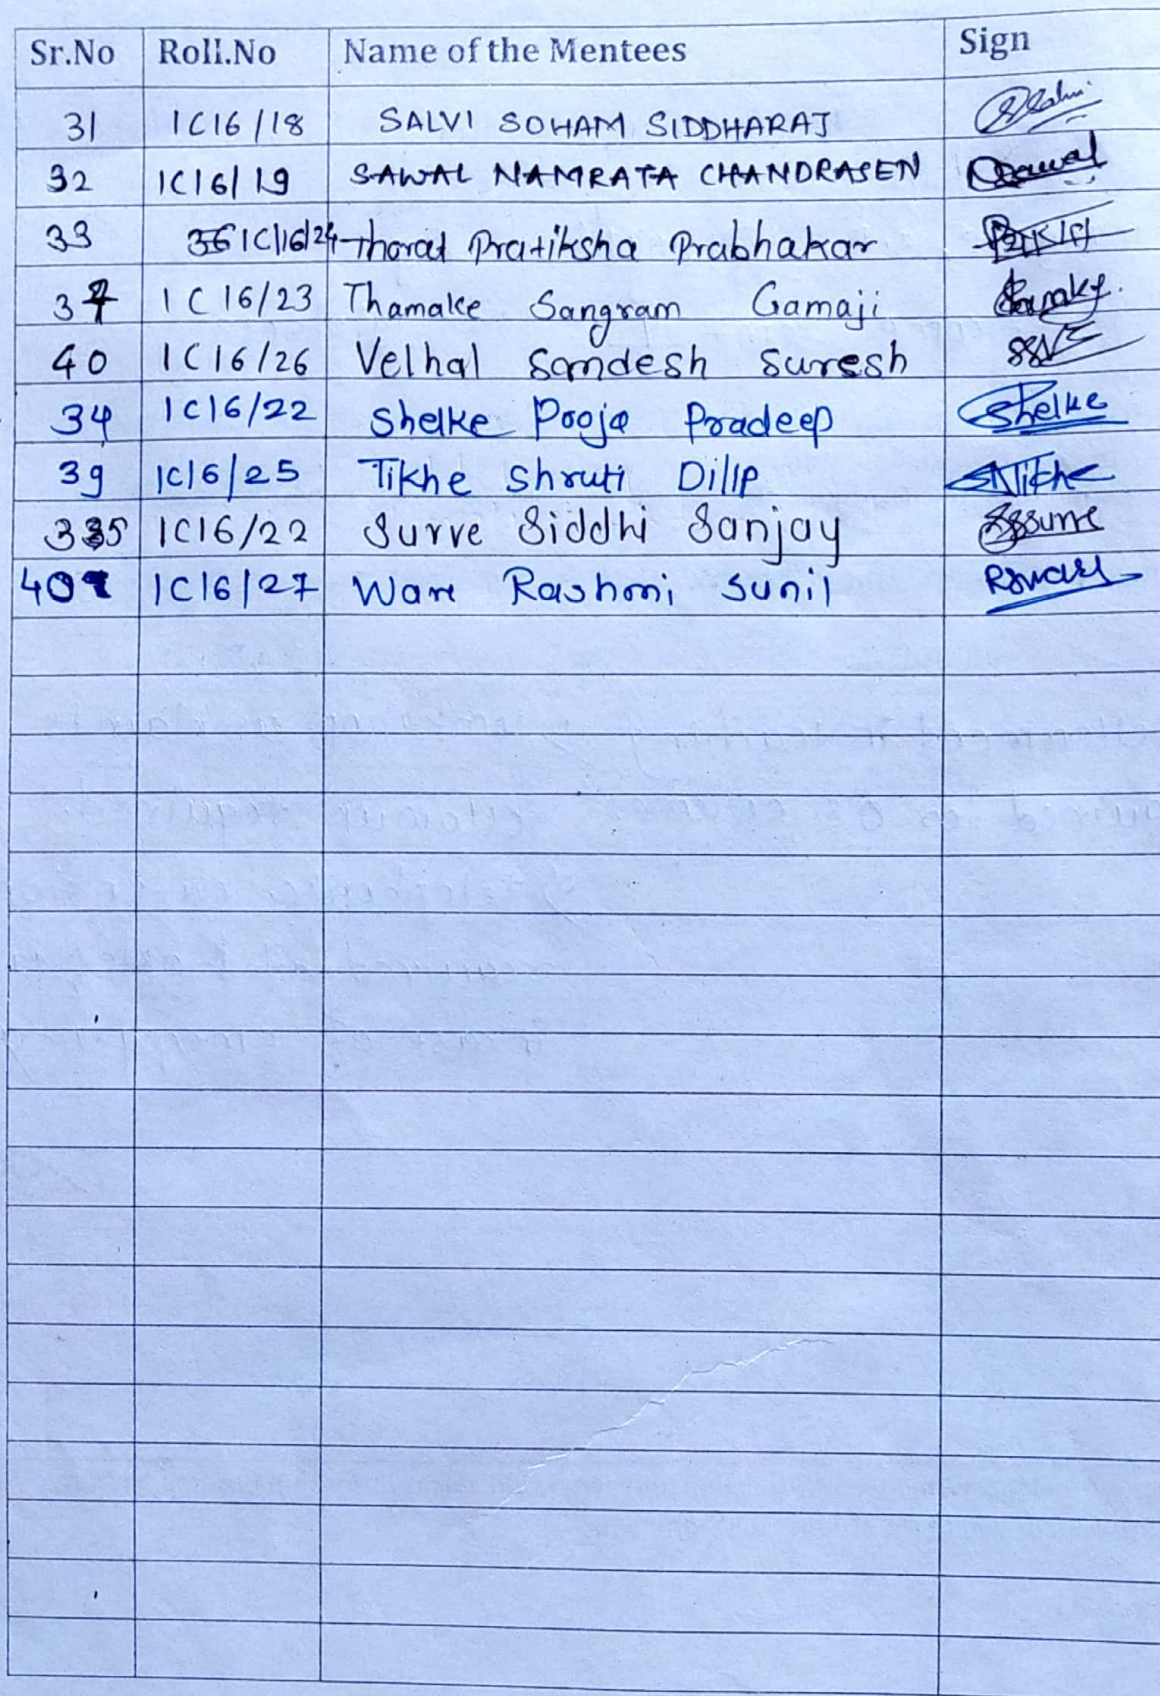 Sr.No Roll.No Name of the Mentees Sign
31 1C16/18 SALVI SOHAM SIDDHARAJ
32 1C16/19 SAWAL NAMRATA CHANDRASEN Sawal
33 36 1C/16/24 Thorat Pratiksha Prabhakar
37 1C16/23 Thamake Sangram Gamaji
40 1C16/26 Velhal Sandesh Suresh
34 1C16/22 Shelke Pooja Pradeep Shelke
39 1C16/25 Tikhe Shruti Dilip
335 1C16/22 Surve Siddhi Sanjay
1C16/27 Ware Rashmi Sunil